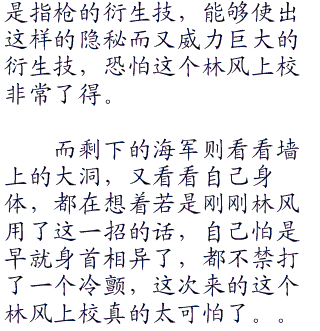 是指枪的衍生技，能够使出
这样的隐秘而又威力巨大的
衍生技，恐怕这个林风上校
非常了得。
而剩下的海军则看看墙
上的大洞，又看看自己身
体，都在想着若是刚刚林风
用了这一招的话，自己怕是
早就身首相异了，都不禁打
了一个冷颤，这次来的这个
林风上校真的太可怕了。。